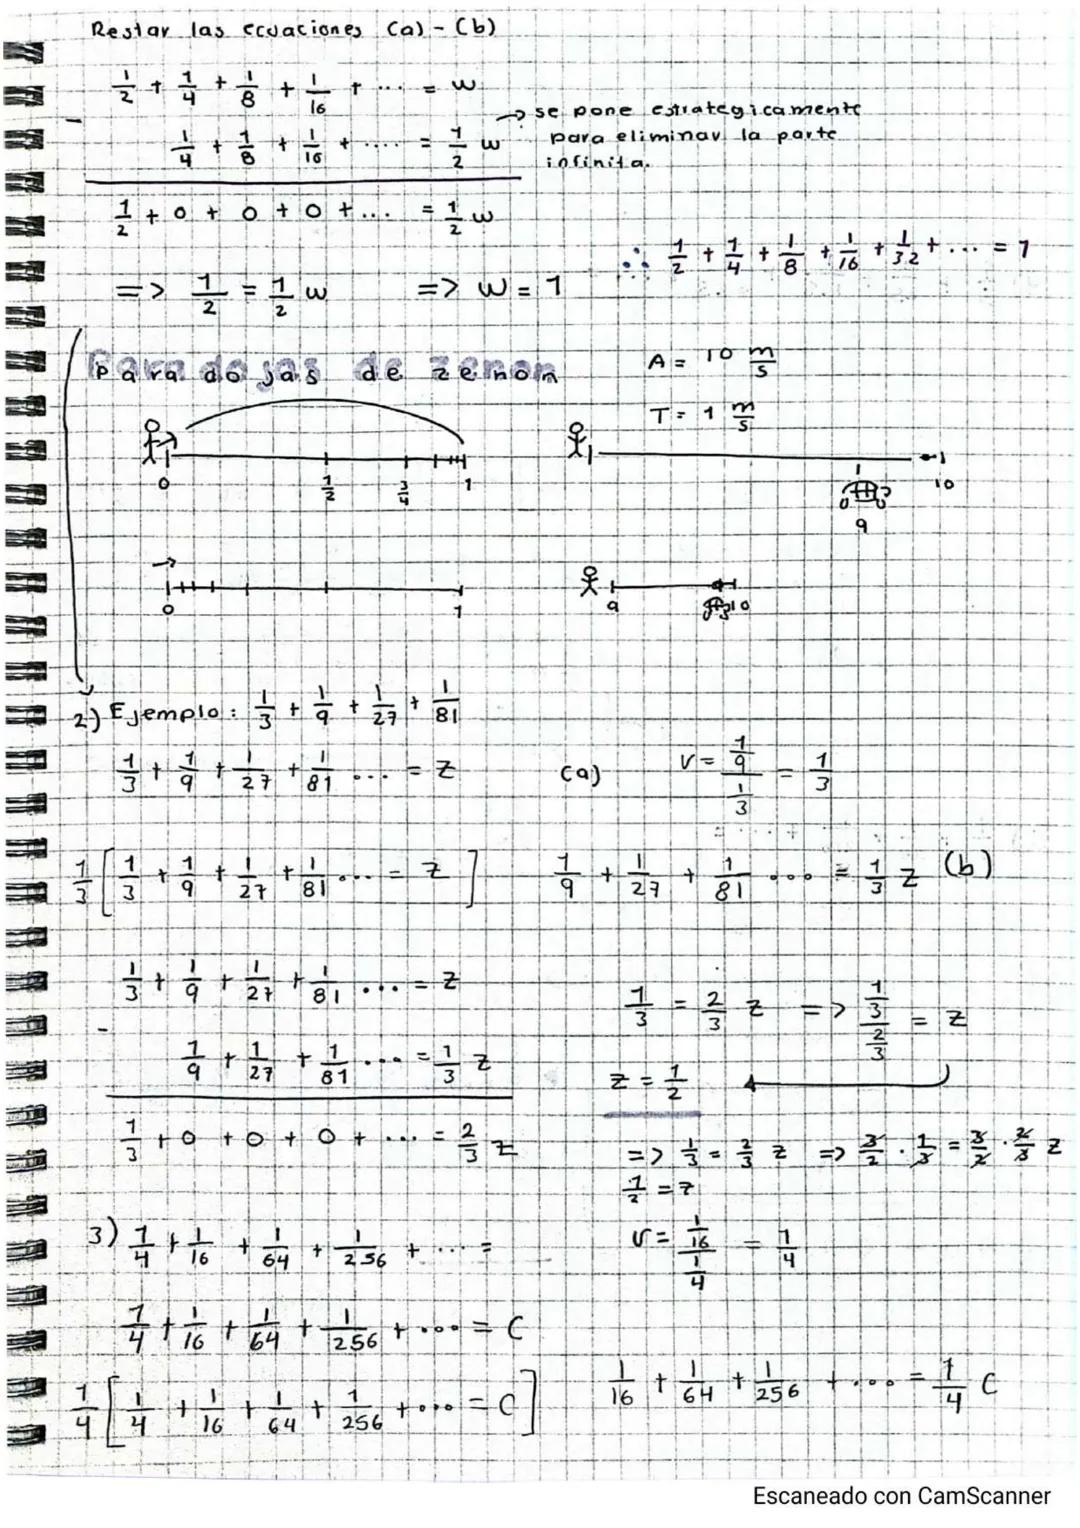 Restar las ecuaciones (a) - (b)
1/2 + 1/4 + 1/8 + 1/16 + ... = w
- 1/4 + 1/8 + 1/16 + .... = 1/2 w
→ se pone estrategicamente
para eliminar la parte
infinita.
1/2 + 0 + 0 + 0 + ... = 1/2 w
∴ 1/2 + 1/4 + 1/8 + 1/16 + 1/32 + ... = 1
=> 1/2 = 1/2 w => w = 1
Paradojas de zenon
A = 10 m/s
T = 1 m/s
0 1/2 3/4 1
9 10
0 1
9 10
2) Ejemplo: 1/3 + 1/9 + 1/27 + 1/81
1/3 + 1/9 + 1/27 + 1/81 ... = z (a) r = 1/9 / 1/3 = 1/3
1/3 [ 1/3 + 1/9 + 1/27 + 1/81 ... = z ] 1/9 + 1/27 + 1/81 .... = 1/3 z (b)
1/3 + 1/9 + 1/27 + 1/81 ... = z
- 1/9 + 1/27 + 1/81 .... = 1/3 z
1/3 + 0 + 0 + 0 + ... = 2/3 z
1/3 = 2/3 z => 1/3 / 2/3 = z
z = 1/2
=> 1/3 = 2/3 z => 3/2 · 1/3 = 3/2 · 2/3 z
1/2 = z
3) 1/4 + 1/16 + 1/64 + 1/256 + ... =
r = 1/16 / 1/4 = 1/4
1/4 + 1/16 + 1/64 + 1/256 + .... = C
1/4 [ 1/4 + 1/16 + 1/64 + 1/256 + .... = C ] 1/16 + 1/64 + 1/256 + .... = 1/4 C
Escaneado con CamScanner